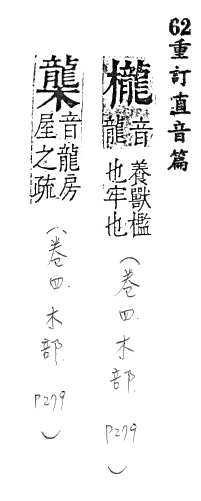 62重訂直音篇
櫳 音龍 養獸檻也牢也
(卷四.木部 P279)
音龍房屋之疏
(卷四.木部 P279)